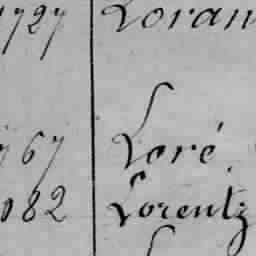 1727 Loran
767 Loré
082 Lorentz